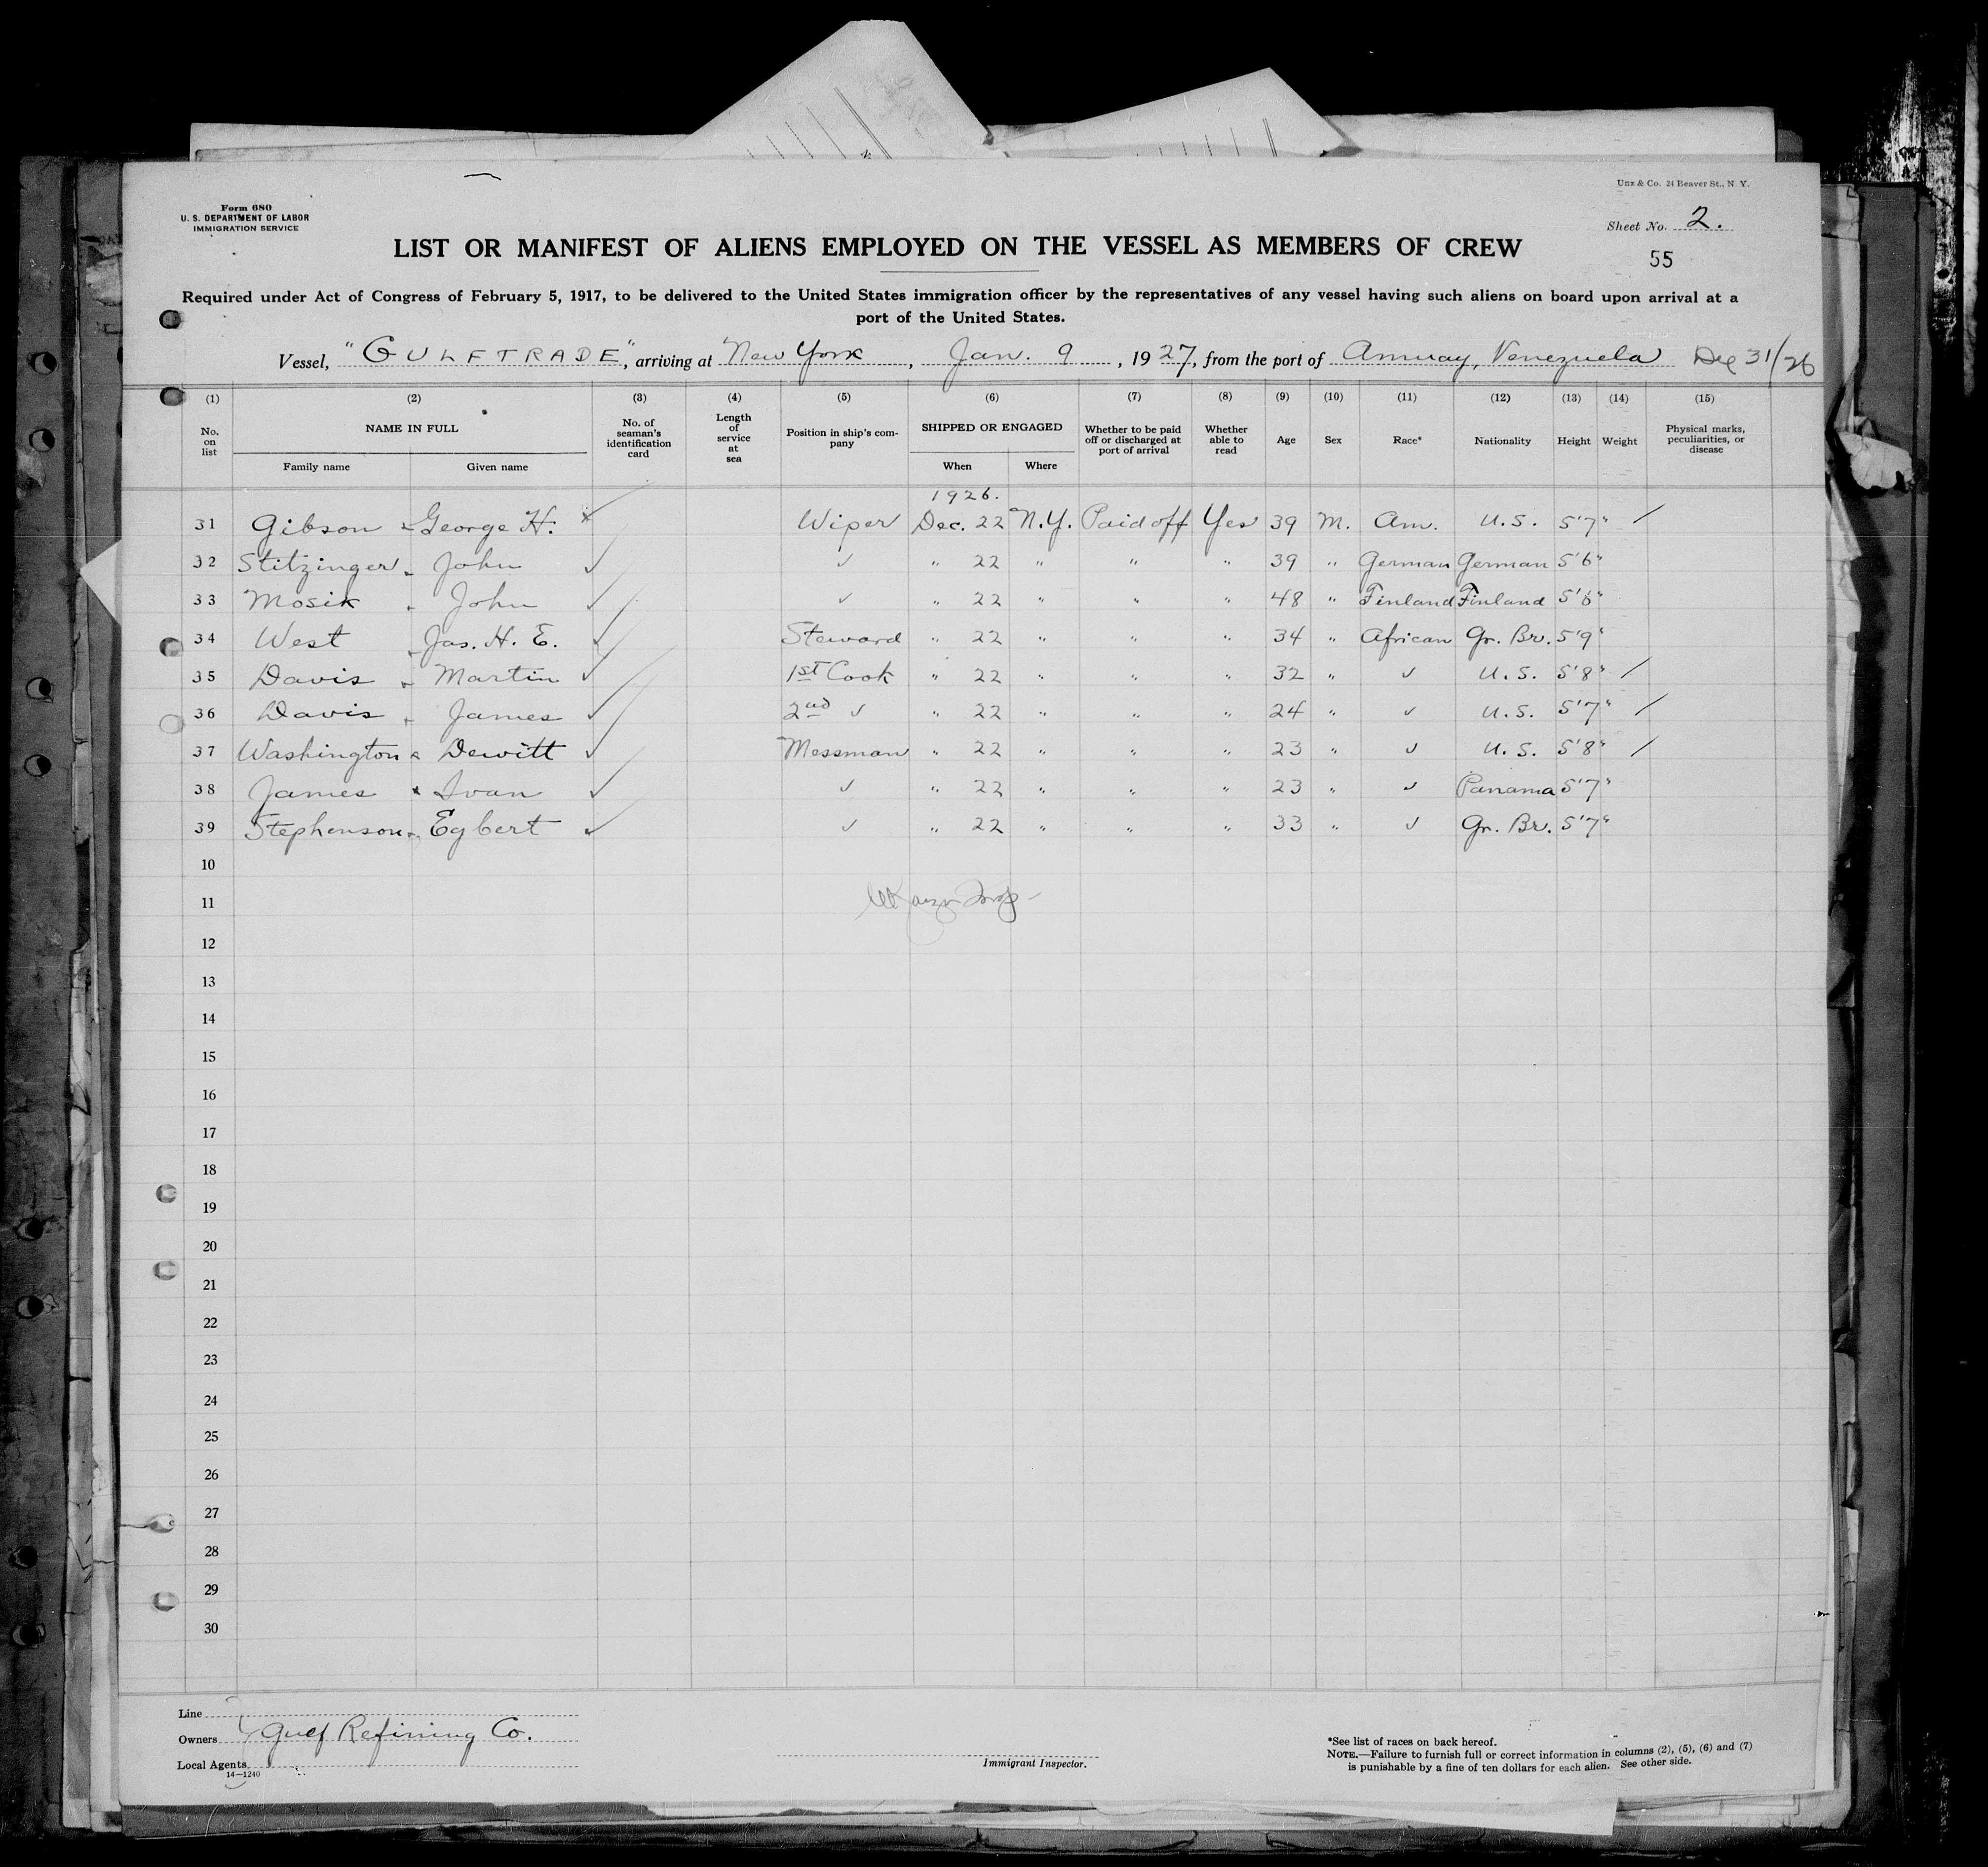 Unz & Co. 24 Beaver St., N. Y.
Form 680
U. S. DEPARTMENT OF LABOR
IMMIGRATION SERVICE
Sheet No. 2.
55
LIST OR MANIFEST OF ALIENS EMPLOYED ON THE VESSEL AS MEMBERS OF CREW
Required under Act of Congress of February 5, 1917, to be delivered to the United States immigration officer by the representatives of any vessel having such aliens on board upon arrival at a
port of the United States.
Vessel, "GULFTRADE", arriving at New York, Jan. 9, 1927, from the port of Amuay, Venezuela Dec 31/26
(1) (2) (3) (4) (5) (6) (7) (8) (9) (10) (11) (12) (13) (14) (15)
No. on list NAME IN FULL Family name Given name No. of seaman's identification card Length of service at sea Position in ship's company SHIPPED OR ENGAGED When Where Whether to be paid off or discharged at port of arrival Whether able to read Age Sex Race* Nationality Height Weight Physical marks, peculiarities, or disease
1926.
31 Gibson George H. x Wiper Dec. 22 N.Y. Paid off Yes 39 M. Am. U.S. 5'7" /
32 Stitzinger John ✓ ✓ " 22 " " " 39 " German German 5'6"
33 Mosik John ✓ ✓ " 22 " " " 48 " Finland Finland
34 West Jas. H. E. ✓ Steward " 22 " " " 34 " African Gr. Br. 5'9"
35 Davis Martin ✓ 1st Cook " 22 " " " 32 " ✓ U.S. 5'8" /
36 Davis James ✓ 2nd ✓ " 22 " " " 24 " ✓ U.S. 5'7" /
37 Washington Dewitt ✓ Messman " 22 " " " 23 " ✓ U.S. 5'8" /
38 James Ivan ✓ ✓ " 22 " " " 23 " ✓ Panama 5'7"
39 Stephenson Egbert ✓ ✓ " 22 " " " 33 " ✓ Gr. Br. 5'7"
10
11
12
13
14
15
16
17
18
19
20
21
22
23
24
25
26
27
28
29
30
Line
Owners Gulf Refining Co.
Local Agents
14—1240
Immigrant Inspector.
*See list of races on back hereof.
NOTE.—Failure to furnish full or correct information in columns (2), (5), (6) and (7)
is punishable by a fine of ten dollars for each alien. See other side.